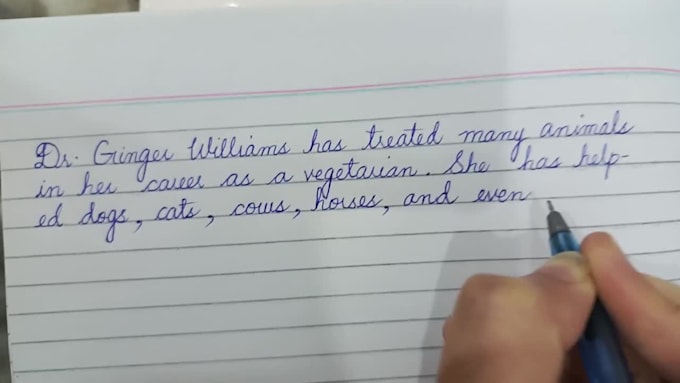 Dr. Ginger Williams has treated many animals
in her career as a vegetarian. She has help-
ed dogs, cats, cows, horses, and even